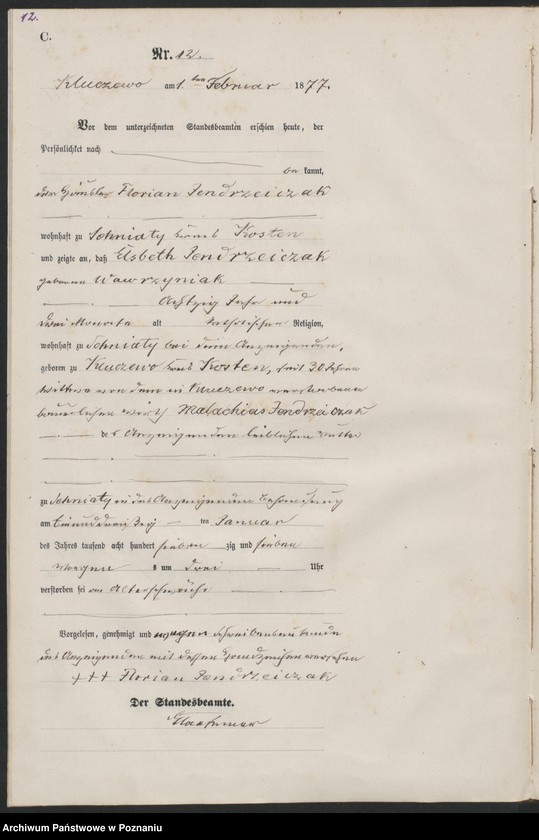 12.
C.
Nr. 12.
Kluczewo am 1ten Februar 1877.
Vor dem unterzeichneten Standesbeamten erschien heute, der
Persönlichkeit nach
be kannt,
der Häusler Florian Jendrzeiczak
wohnhaft zu Sekniaty Kreis Kosten
und zeigte an, daß Elsbeth Jendrzeiczak
geborene Wawrzyniak
Achtzig Jahr und
drei Monate alt katholischen Religion,
wohnhaft zu Sekniaty bei dem Anzeigenden,
geboren zu Kluczewo Kreis Kosten, seit 30 Jahren
Wittwe von dem in Kluczewo verstorbenen
bäuerlichen Wirth Malachias Jendrzeiczak
des Anzeigenden leiblichen Mutter
zu Sekniaty in des Anzeigenden Behausung
am einunddreißig ten Januar
des Jahres tausend acht hundert sieben zig und sieben
Morgens um drei Uhr
verstorben sei an Altersschwäche
Vorgelesen, genehmigt und wegen Schreibensunkunde
des Anzeigenden mit dessen Handzeichen versehen
+++ Florian Jendrzeiczak
Der Standesbeamte.
Archiwum Państwowe w Poznaniu